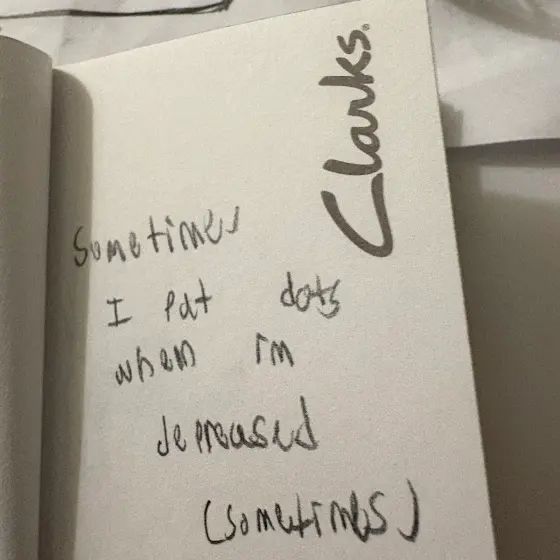 Clarks.
Sometimes
I pat dots
when im
depreased
(sometimes)